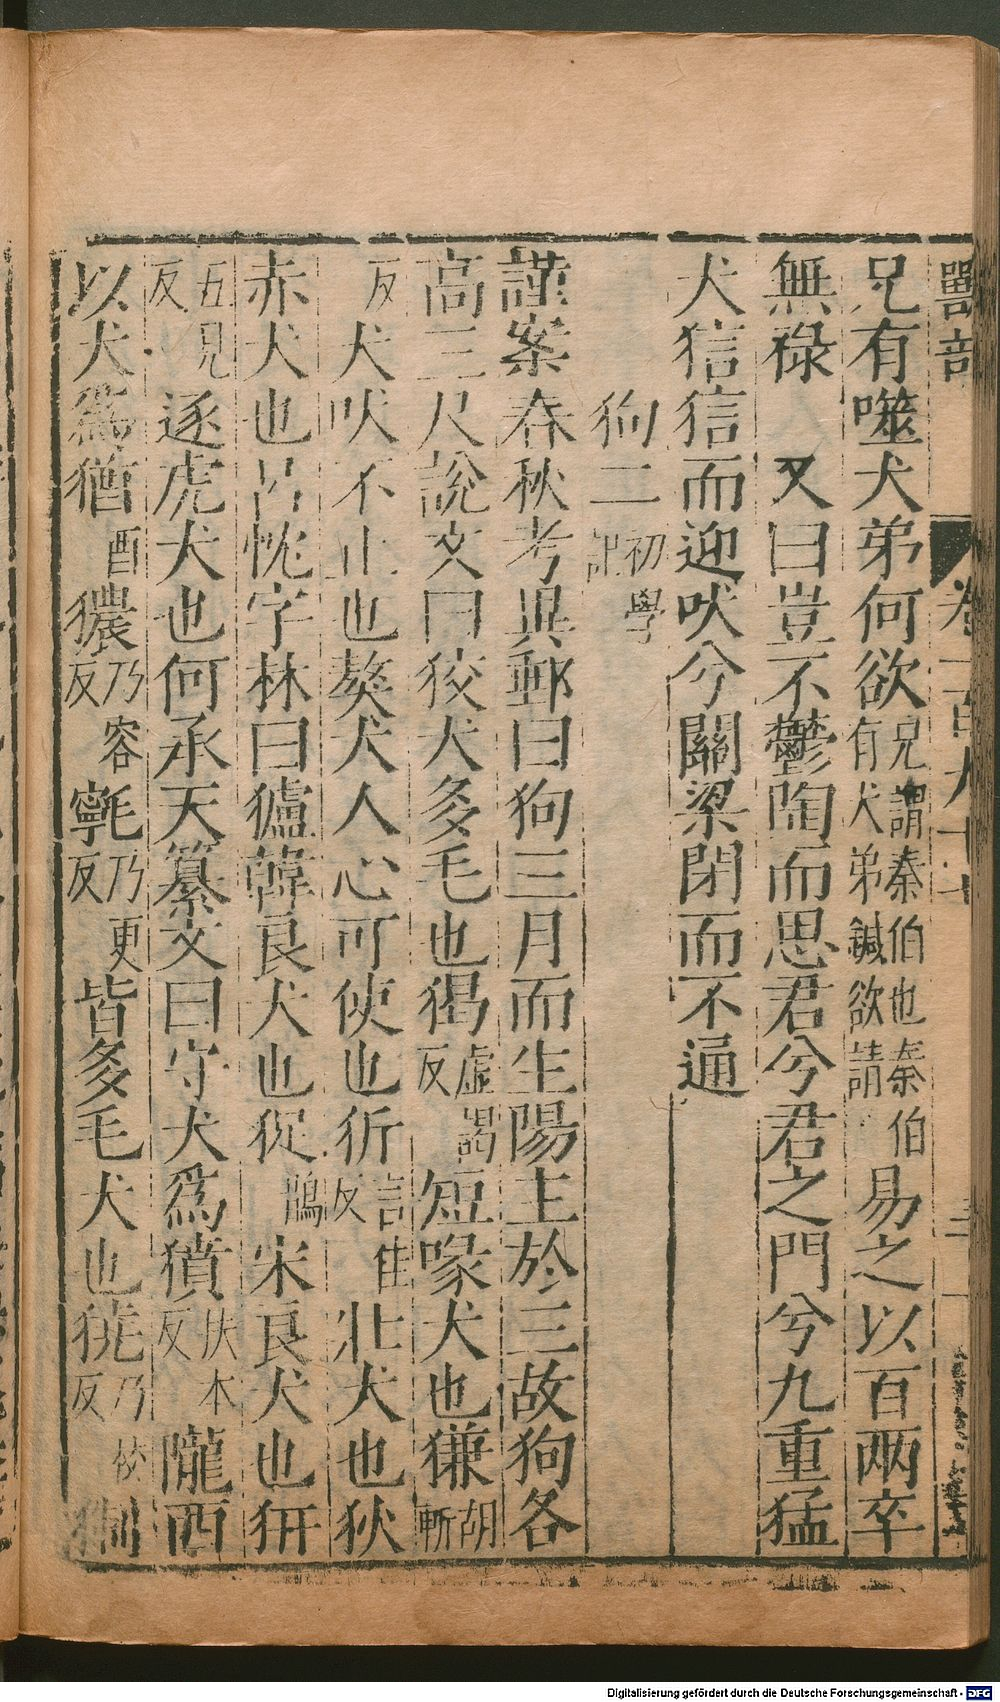 獸部
兄有噬犬弟何欲兄謂秦伯也秦伯有犬弟鍼欲請易之以百兩卒
無祿 又曰豈不鬱陶而思君兮君之門兮九重猛
犬信信而迎吠兮關梁閉而不通
狗二初學記
謹案春秋考異郵曰狗三月而生陽主於三故狗各
高三尺說文曰狡犬多毛也猲虛謁反短喙犬也獫胡斬
反犬吠不止也獒犬人心可使也犷言佳反壯犬也狄
赤犬也呂忱字林曰獹韓良犬也猑鵲宋良犬也犴
五見反逐虎犬也何承天纂文曰守犬爲獖扶本反隴西
以犬爲猶酉獽乃容反㲰乃更反皆多毛犬也㹛乃校反
Digitalisierung gefördert durch die Deutsche Forschungsgemeinschaft - DFG